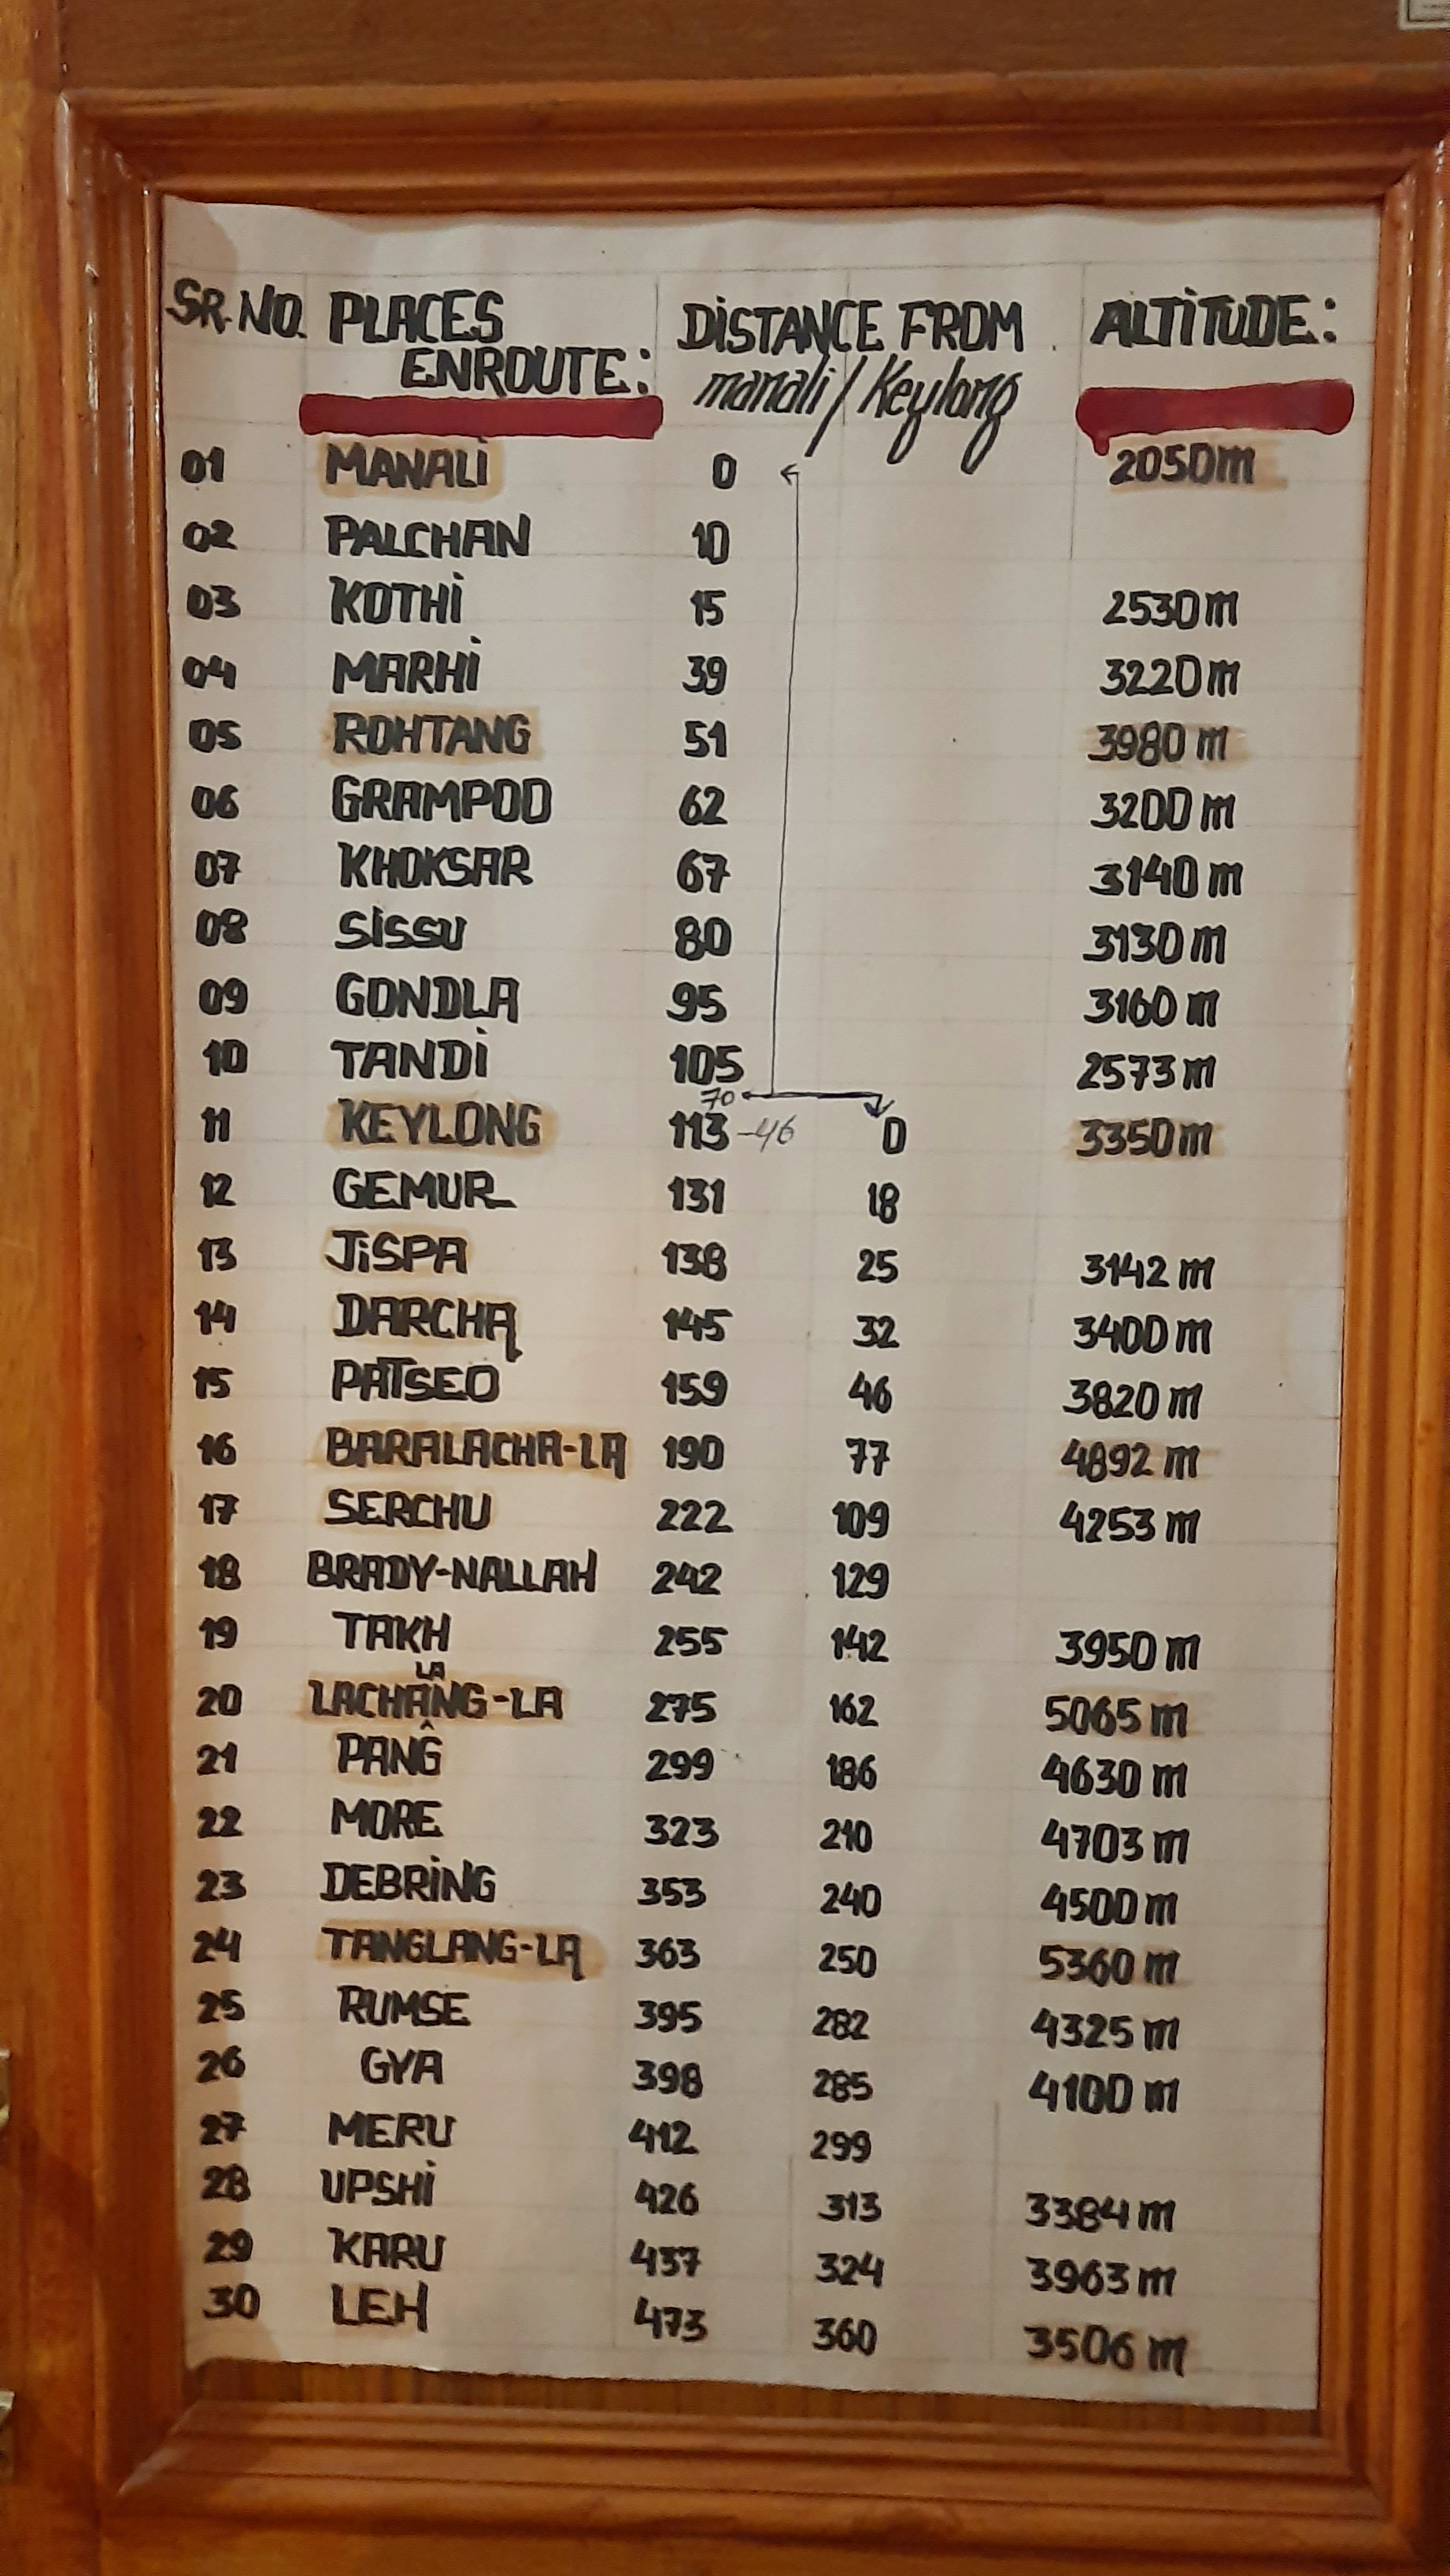 SR.NO. PLACES ENROUTE: DISTANCE FROM manali/Keylong ALTITUDE:
01 MANALI 0 2050m
02 PALCHAN 10
03 KOTHI 15 2530m
04 MARHI 39 3220m
05 ROHTANG 51 3980m
06 GRAMPOO 62 3200m
07 KHOKSAR 67 3140m
08 SISSU 80 3130m
09 GONDLA 95 3160m
10 TANDI 105 2573m
70
11 KEYLONG 113-46 0 3350m
12 GEMUR 131 18
13 JISPA 138 25 3142m
14 DARCHA 145 32 3400m
15 PATSEO 159 46 3820m
16 BARALACHA-LA 190 77 4892m
17 SERCHU 222 109 4253m
18 BRADY-NALLAH 242 129
19 TAKH 255 142 3950m
LA
20 LACHANG-LA 275 162 5065m
21 PANG 299 186 4630m
22 MORE 323 210 4703m
23 DEBRING 353 240 4500m
24 TANGLANG-LA 363 250 5360m
25 RUMSE 395 282 4325m
26 GYA 398 285 4100m
27 MERU 412 299
28 UPSHI 426 313 3384m
29 KARU 437 324 3963m
30 LEH 473 360 3506m